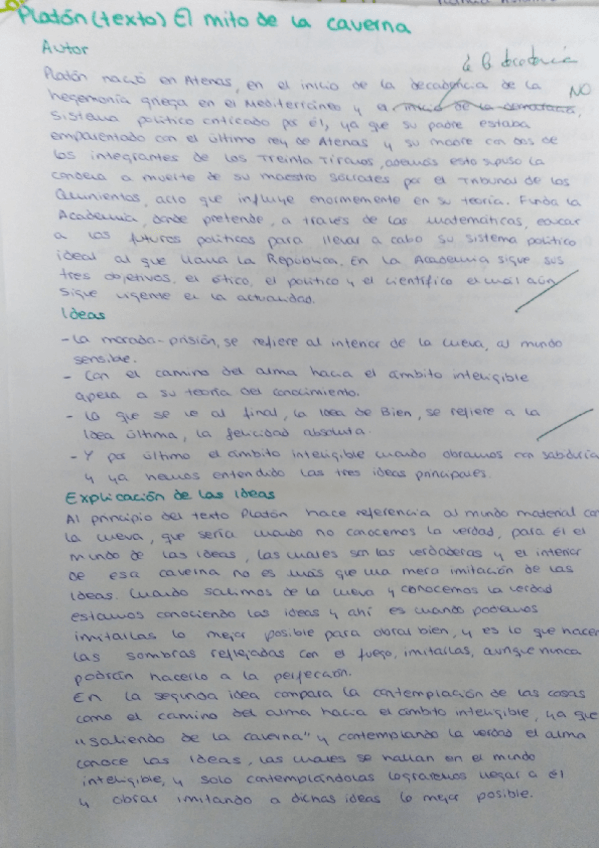 Platón (texto) El mito de la caverna
Autor
a la decadencia
Platón nació en Atenas, en el inicio de la decadencia de la NO
hegemonía griega en el Mediterráneo y el inicio de la democracia,
sistema político criticado por él, ya que su padre estaba
emparentado con el último rey de Atenas y su madre con dos de
los integrantes de los Treinta Tiranos, además esto supuso la
condena a muerte de su maestro Sócrates por el Tribunal de los
Quinientos, acto que influye enormemente en su teoría. Funda la
Academia, donde pretende, a través de las matemáticas, educar
a los futuros políticos para llevar a cabo su sistema político
ideal al que llama la República. En la Academia sigue sus
tres objetivos, el ético, el político y el científico el cuál aún
sigue vigente en la actualidad.
Ideas
- La morada-prisión, se refiere al interior de la cueva, al mundo
sensible.
- Con el camino del alma hacia el ámbito inteligible
apela a su teoría del conocimiento.
- Lo que se ve al final, la Idea de Bien, se refiere a la
Idea última, la felicidad absoluta.
- Y por último el ámbito inteligible cuando obramos con sabiduría
y ya hemos entendido las tres ideas principales.
Explicación de las Ideas
Al principio del texto Platón hace referencia al mundo material con
la cueva, que sería cuando no conocemos la verdad, para él el
mundo de las ideas, las cuales son las verdaderas y el interior
de esa caverna no es más que una mera imitación de las
Ideas. Cuando salimos de la cueva y conocemos la verdad
estamos conociendo las ideas y ahí es cuando podremos
imitarlas lo mejor posible para obrar bien, y es lo que hacen
las sombras reflejadas con el fuego, imitarlas, aunque nunca
podrán hacerlo a la perfección.
En la segunda idea compara la contemplación de las cosas
como el camino del alma hacia el ámbito inteligible, ya que
"saliendo de la caverna" y contemplando la verdad el alma
conoce las Ideas, las cuales se hallan en el mundo
inteligible, y solo contemplándolas lograremos llegar a él
y obrar imitando a dichas ideas lo mejor posible.